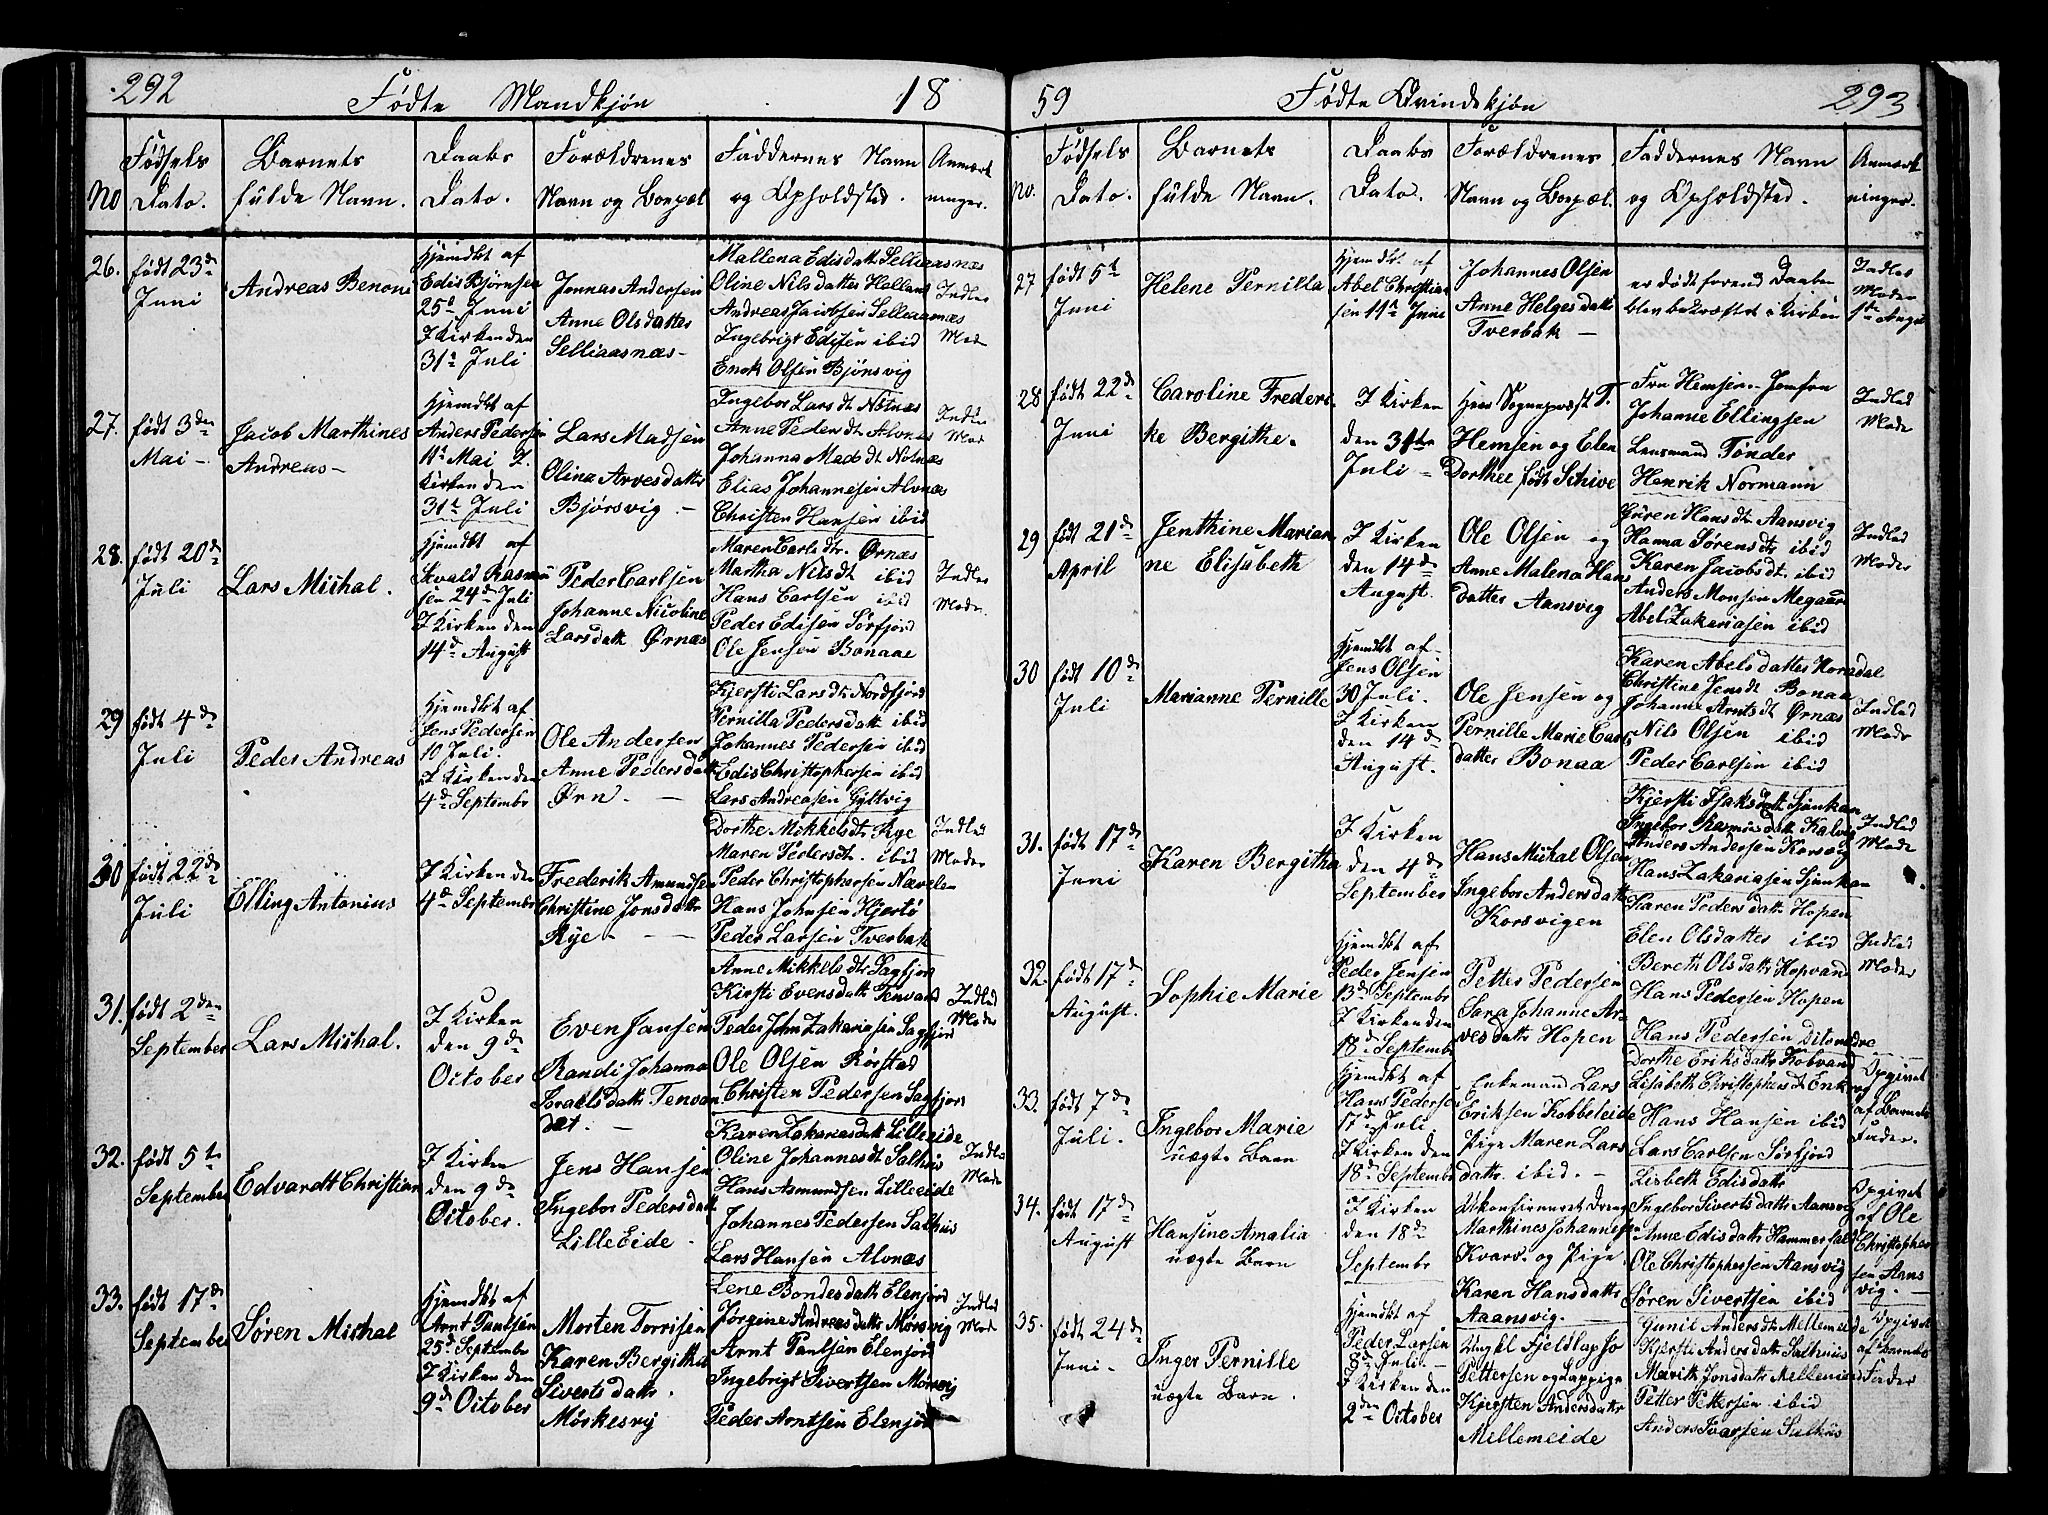 292
Fødte Mandkjøn
18
No
Fødsels
Dato.
Barnets
fulde Navn.
Daabs
Dato.
Forældrenes
Navn og Bopæl
Faddernes Navn
og Opholdsted.
Anmærk
ninger.
26.
født 23de
Juni
Andreas Benoni
Hjemdbt af
Edis Bjørnsen
25d Juni
I Kirken den
31t Juli
Jonnas Andersen
Anne Olsdatter
Selliaasnæs
Mallena Edisdattr Selliaasnæs
Oline Nilsdatter Helland
Andreas Jacobsen Selliaasnæs
Ingebrigt Edisen ibid
Enok Olsen Bjönsvig
Indled
Mod
27.
født 3den
Mai
Jacob Marthines
Andreas
Hjemdbt af
Anders Pedersen
11t Mai I
Kirken den
31t Juli
Lars Madsen
Olina Arvesdattr
Bjørsvig.
Ingebor Larsdt Notnæs
Anne Pedersdt Alvnes
Johanna Madsdt Notnæs
Elias Johannesen Alvnæs
Christen Hansen ibid
Indl
Mod
28.
født 20de
Juli
Lars Michal.
Hjemdbt af
Sivald Rasmu
sen 24de Juli
I Kirken den
14d August
Peder Carlsen
Johanne Nicoline
Larsdatt Ørnæs
Maren Carlsdtr. Ørnæs
Martha Nilsdt ibid
Hans Carlsen ibid
Peder Edisen Sørfjord
Ole Jensen Bonaae
Indled
Modr
29
født 4de
Juli
Peder Andreas
Hjemdbt af
Jens Pedersen
10 Juli.
I Kirken den
4d Septembr
Ole Andersen
Anne Pedersdatt
Ørn.
Kjersti Larsdt Nordfjord
Pernilla Pedersdatt ibid
Johannes Pedersen ibid
Edis Christophersen ibid
Lars Andreasen Gyltvig
30
født 22de
Juli
Elling Antonius
I Kirken den
4d September
Frederik Amundsen
Christine Jonsdattr
Rye
Dorthe Mikkelsdtr Rye
Maren Pedersdt. ibid
Peder Christophersen Nævelen
Hans Johnsen Hjertø
Peder Larsen Tverbak
Indled
Moder
31.
født 2den
September
Lars Michal.
I Kirken
den 9de
October
Even Jansen
Randi Johanna
Israelsdattr Tenvan
det.
Anne Mikkelsdtr Sagfjord
Kirsti Evensdattr Tenvand
Peder John Zakariasen Sagfjord
Ole Olsen Rørstad
Christen Pedersen Sagfjord
Indled
Moder
32.
født 5te
September
Edvardt Christian
I Kirken
den 9de
October.
Jens Hansen
Ingebor Pedersdatt
Lille Eide
Karen Zakariasdatt Lilleeide
Oline Johannesdt Salhus
Hans Asmundsen Lilleeide
Johannes Pedersen Salhus
Lars Hansen Alvnæs
Indled
Mod
33.
født 17de
September
Søren Michal
Hjemdbt af
Arnt Paulsen
25d Septembr
I Kirken den
9d October
Morten Torrisen
Karen Bergitha
Sivertsdattr.
Mørkesvj
Lene Bondesdatt Elenjord
Jørgine Andreasdattr Mørsvig
Arnt Paulsen Elenjord
Ingebrigt Sivertsen Mørsvig
Peder Arntsen Elenjord
Indled
Mod
59
Fødte Qvindekjön
293
No.
Fødsels
Dato.
Barnets
fulde Navn.
Daabs
Dato.
Forældrenes
Navn og Bopæl.
Faddernes Navn
og Opholdsted.
Anmærk
ninger.
27
født 5te
Juni
Helene Pernilla
Hjemdbt af
Abel Christian
sen 11te Juni
Johannes Olsen
Anne Helgesdatt
Tverbak
er død forend Daaben
blev bekræftet i Kirken
Indled
Moder
28
født 22de
Juni
Caroline Frederi
ke Bergithe.
I Kirken
den 31te
Juli
Herr Sognepræst P.
Hemsen og Elen
Dorthee født Schive
Fru Hemsen Jomfru
Johanne Ellingsen
Lensmand Tønder
Henrik Normann
Indled
Modr
29
født 21de
April
Jenthine Marian
ne Elisabeth
I Kirken
den 14de
August.
Ole Olsen og
Anne Malena Hans
datter Aansvig
Guren Hansdtr Aansvig
Hanna Sørensdtr ibid
Karen Jacobsdt. ibid
Anders Monsen Megaar
Abel Zakariasen ibid
Indled
Moder
30
født 10de
Juli
Marianne Pernille
Hjemdbt af
Jens Olsen
30 Juli.
I Kirken
den 14de
August.
Ole Jensen og
Pernille Marie Carls
datter Bonaa
Karen Abelsdatter Horndal
Christine Jensdt Bonaa
Johanne Arntsdt Ørnæs
Nils Olsen ibid
Peder Carlsen ibid
Indled
Modr
31.
født 17de
Juni
Karen Bergitha
I Kirken
den 4de
September
Hans Michal Olsen
Ingebor Andersdatt
Korsvigen
Kjersti Isaksdatt Sjunkan
Ingebor Rasmusdatt Kalvig
Anders Andersen Korsvig
Hans Zakariasen Sjunkan
Indled
Modr
32.
født 17de
August.
Sophie Marie
Hjemdbt af
Peder Jensen
13d Septembr
I Kirken den
18d Septembr
Petter Pedersen
Sara Johanne Ar
vesdattr Hopen
Karen Pedersdattr Hopen
Elen Olsdatter ibid
Bereth Olsdattr Hopvand
Hans Pedersen Hopen
Hans Pedersen Ditonedre
Indled
Moder
33.
født 7de
Juli.
Ingebor Marie
uægte Barn
Hjemdbt af
Hans Pedersen
17d Juli
I Kirken den
18d Septembr
Enkemand Lars
Eriksen Kobbeleide
Pige Maren Lars
dattr. ibid.
Dorthe Eriksdattr Kobvand
Lisabeth Christophersdt Enk
Hans Hansen ibid
Lars Carlsen Sørfjord
Opgivet
af Barnets
Fader.
34.
født 17de
August
Hansine Amalia
uægte Barn
I Kirken
den 18de
Septembr
Ukonfirmeret Dreng
Marthines Johannesen
Kvarv og Pige
Karen Hansdattr
Aaansvig.
Lisbeth Edisdattr
Ingebor Sivertsdattr Aansvig
Anne Edisdattr Hammerfald
Ole Christophersen Aansvig
Søren Sivertsen ibid
Opgivet
af Ole
Christopher
sen Aans
vig.
35.
født 24de
Juni
Inger Pernille
uægte Barn.
Hjemdbt af
Peder Larsen
8de Juli.
I Kirken den
2den October
Ungkl Fjeldlap Jo
Pettersen og Lappige
Kjersten Andersdattr
Mellemeide
Gunil Andersdt Mellemeide
Kjersti Andersdattr Salhuus
Marith Jonsdattr Mellemeide
Petter Pettersen ibid
Anders Ivarsen Salhus
Opgivet
af Barnets
Fader